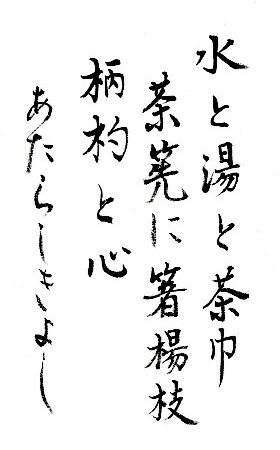 水と湯と茶巾
茶筅に箸楊枝
柄杓と心
あたらしきよし